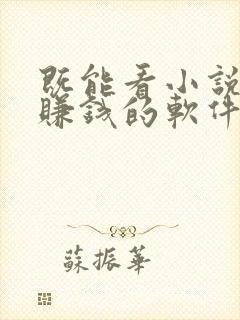 既能看小說
賺錢的軟件
蘇振華